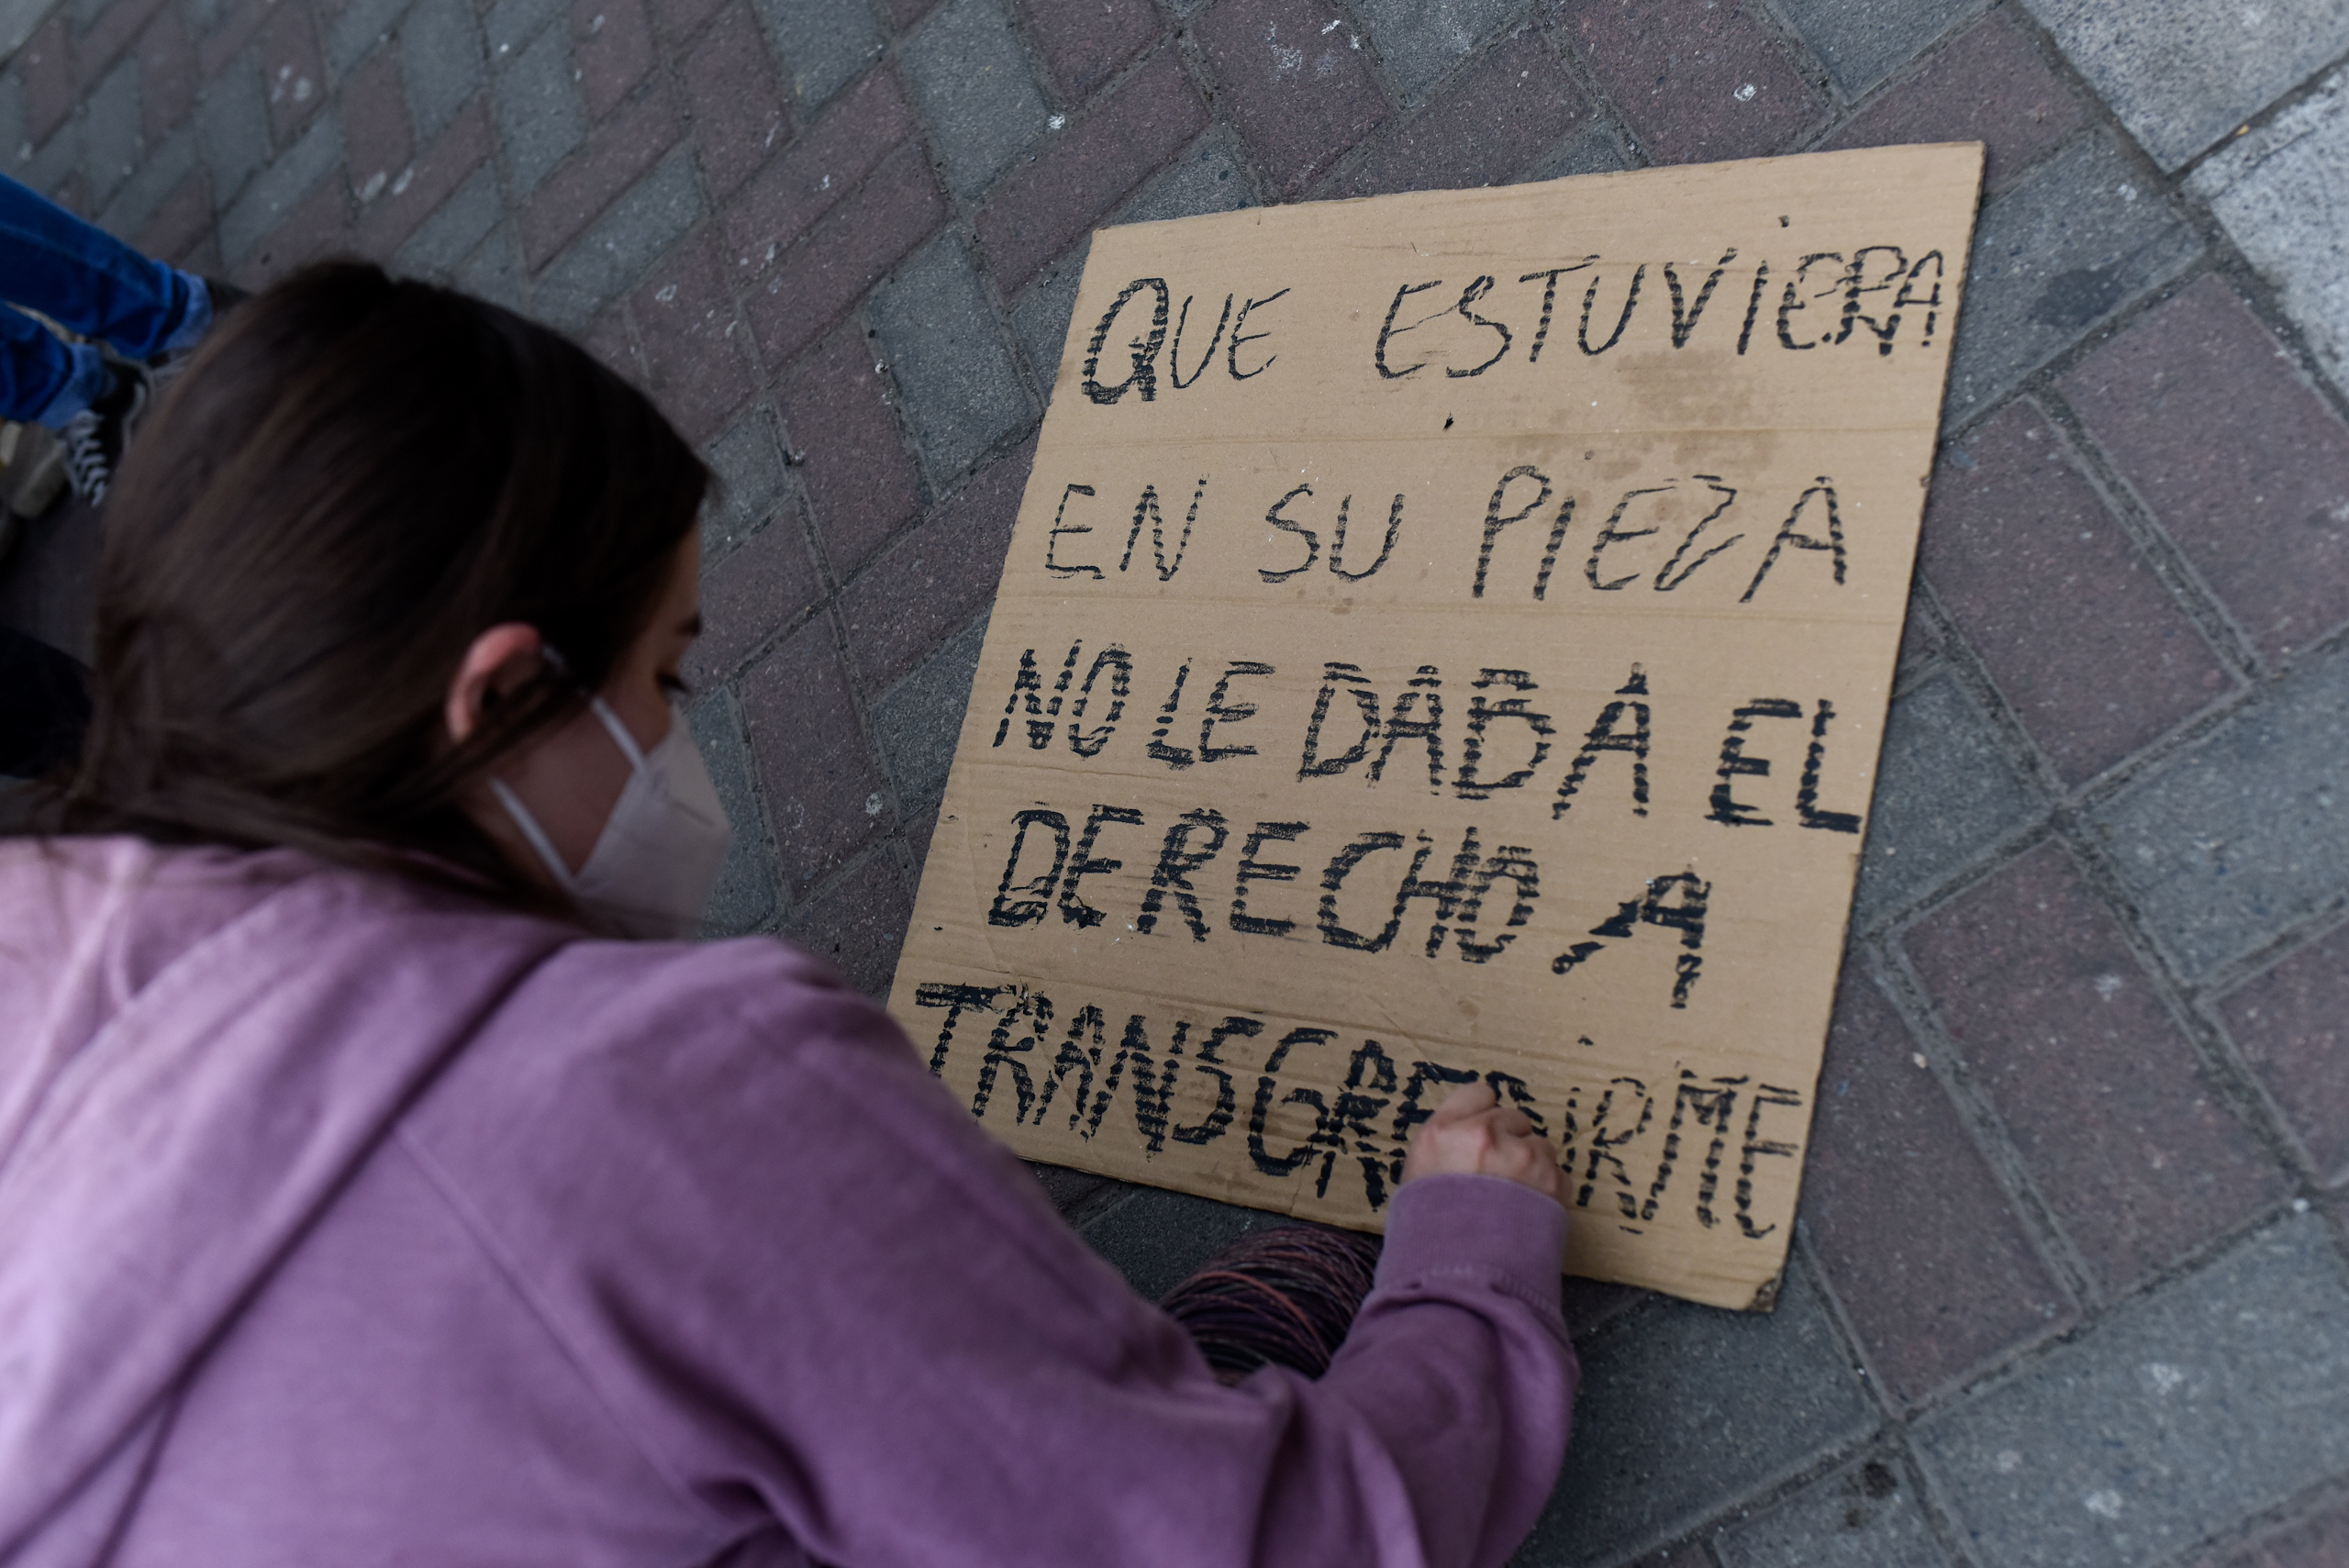 QUE ESTUVIERA
EN SU PIEZA
NO LE DABA EL
DERECHO A
TRANSGREDIRME